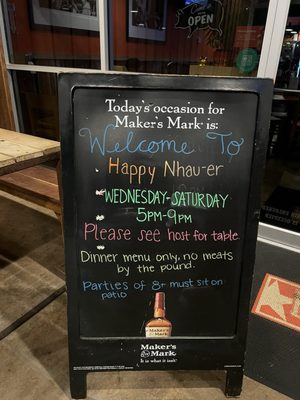 OPEN
Today's occasion for
Maker's Mark® is:
Welcome To
Happy Nhau-er
WEDNESDAY-SATURDAY
5PM-9PM
Please see host for table.
Dinner menu only, no meats
by the pound.
Parties of 8+ must sit on
patio
Maker's
Mark
It is what it isn't.